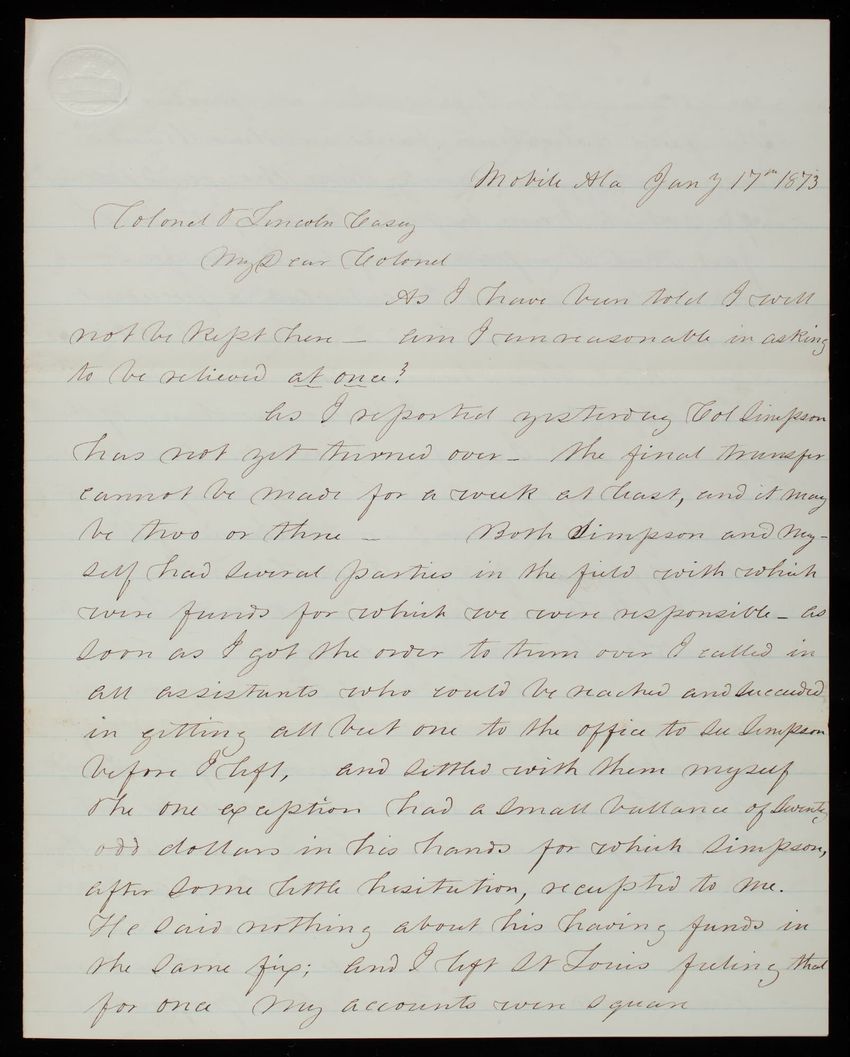 Mobile Ala Jany 17th 1873
Colonel T Lincoln Casey
My Dear Colonel
As I have been told I will
not be kept here — am I unreasonable in asking
to be relieved at once?
As I reported yesterday Col Simpson
has not yet turned over — the final transfer
cannot be made for a week at least, and it may
be two or three — Both Simpson and my-
self had several parties in the field with which
were funds for which we were responsible — as
soon as I got the order to turn over I called in
all assistants who could be reached and succeeded
in getting all but one to the office to see Simpson
before I left, and settled with them myself
The one exception had a small ballance of seventy
odd dollars in his hands for which Simpson,
after some little hesitation, receipted to me.
He said nothing about his having funds in
the same fix; and I left St Louis feeling that
for once my accounts were square